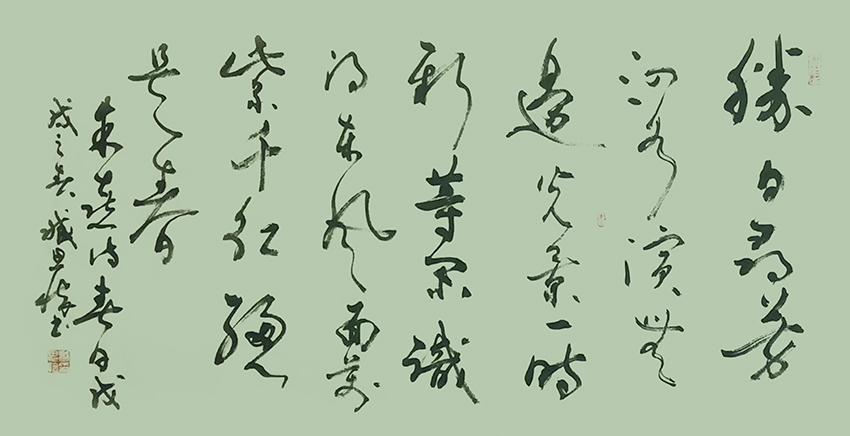 勝日尋芳
泗水濱無
邊光景一時
新等閑識
得東風面萬
紫千紅總
是春
朱熹詩春日戊
戌之